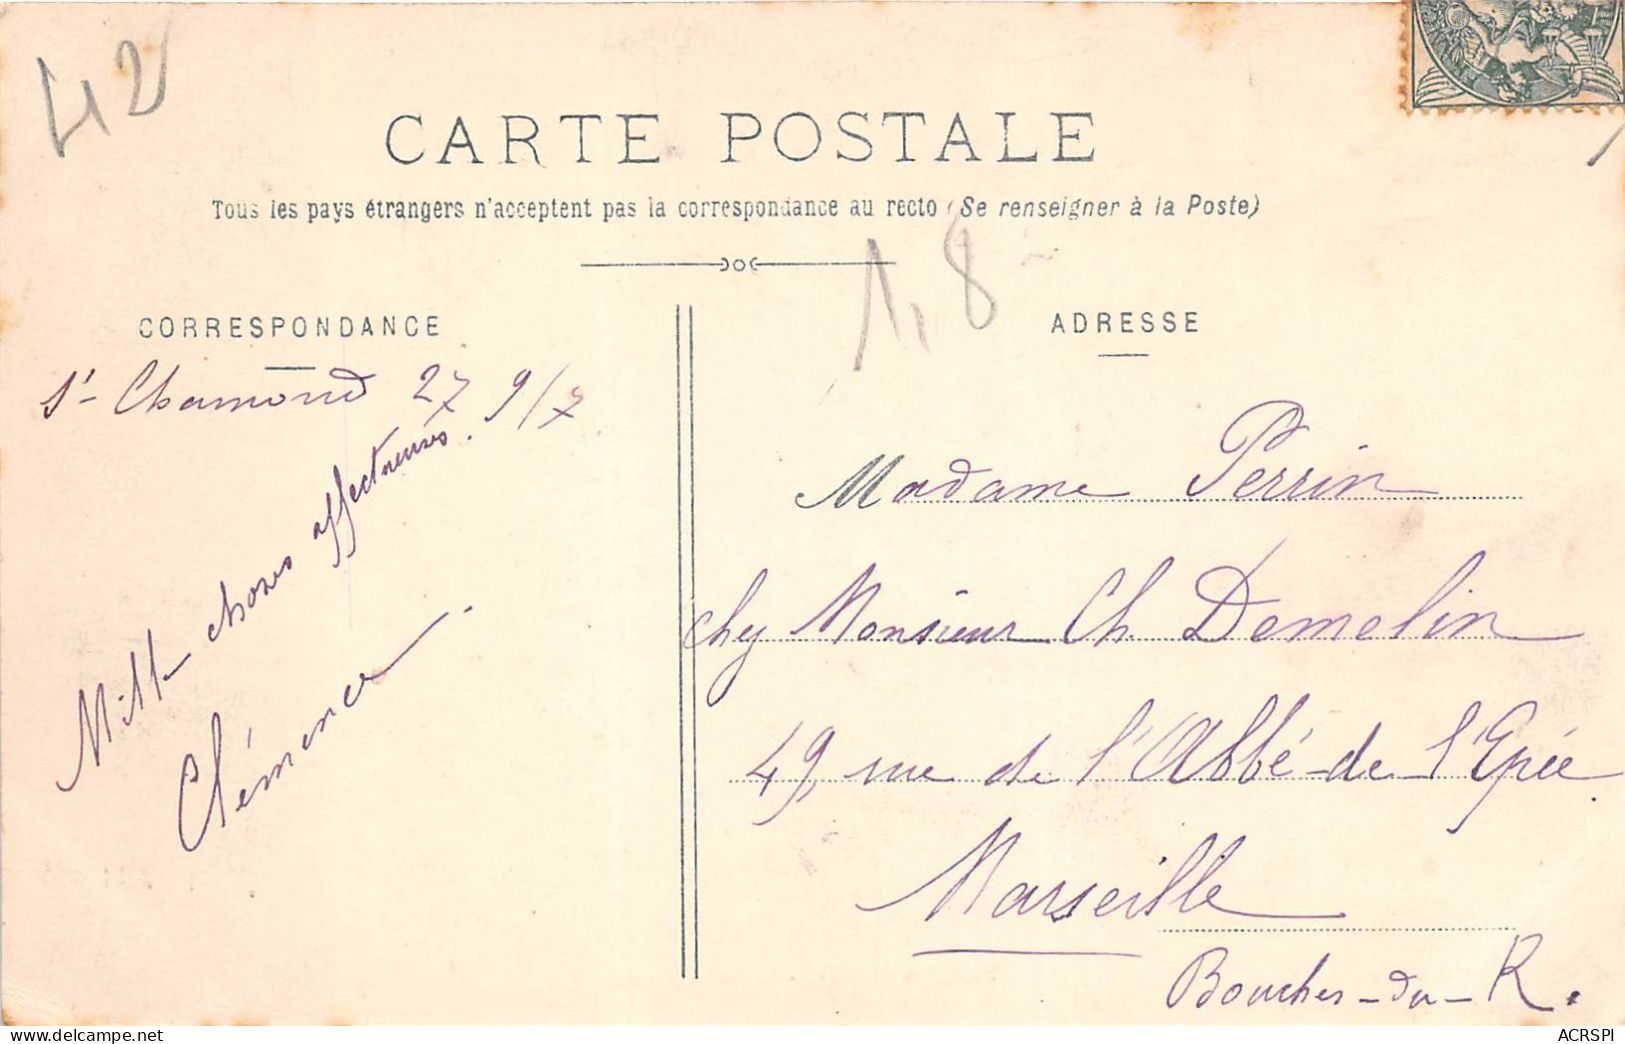 42
CARTE POSTALE
Tous les pays étrangers n'acceptent pas la correspondance au recto (Se renseigner à la Poste)
1,8
CORRESPONDANCE
St Chamond 27 9/7
Mille choses affectueuses.
Clémence.
ADRESSE
Madame Perrin
chez Monsieur Ch. Demelin
49, rue de l'Abbé-de-l'Epée.
Marseille
Bouches-du-R.
ACRSPI